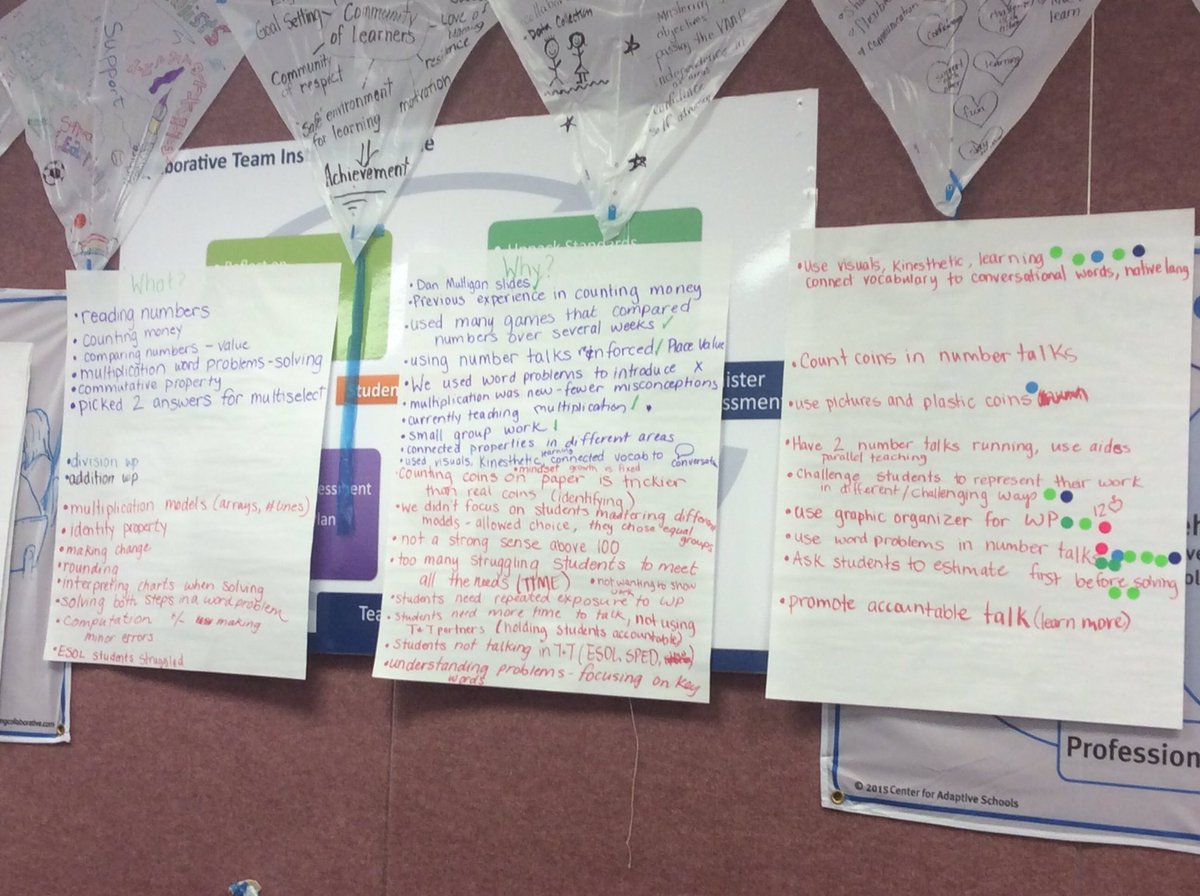 Support
Goal Setting
Community
of Learners
Love of
learning
Community
of respect
resilience
Safe environment
for learning
motivation
Achievement
Data Collection
objectives
passing the
confidence
flexible
communication
learning
fun
learn
laborative Team Ins
What?
• reading numbers
• counting money
• comparing numbers - value
• multiplication word problems - solving
• commutative property
• picked 2 answers for multiselect
• division wp
• addition wp
• multiplication models (arrays, #lines)
• identity property
• making change
• rounding
• interpreting charts when solving
• solving both steps in a word problem
• computation +/- making
minor errors
• ESOL students struggled
Why?
• Dan Mulligan slides
• Previous experience in counting money
• used many games that compared
numbers over several weeks ✓
• using number talks reinforced / Place Value
• We used word problems to introduce X
• multiplication was new - fewer misconceptions
• currently teaching multiplication
• small group work
• connected properties in different areas
• used visuals, kinesthetic, learning connected vocab to conversate
• mindset growth is fixed
• Counting coins on paper is trickier
than real coins (identifying)
• we didn't focus on students mastering different
models - allowed choice, they chose equal
groups
• not a strong sense above 100
• too many struggling students to meet
all the needs (TIME)
• not wanting to show
work
• Students need repeated exposure to WP
• Students need more time to talk, not using
T+T partners (holding students accountable)
• Students not talking in T+T (ESOL, SPED,
• understanding problems - focusing on key
words
• Use visuals, kinesthetic, learning
connect vocabulary to conversational words, native lang
• Count coins in number talks
• use pictures and plastic coins
• Have 2 number talks running, use aides
parallel teaching
• Challenge students to represent their work
in different/challenging ways
• use graphic organizer for WP
12
• use word problems in number talks
• Ask students to estimate first before solving
• promote accountable talk (learn more)
Studen
ister
ssmen
essment
lan
Tea
ngcollaborative.com
Profession
© 2015 Center for Adaptive Schools